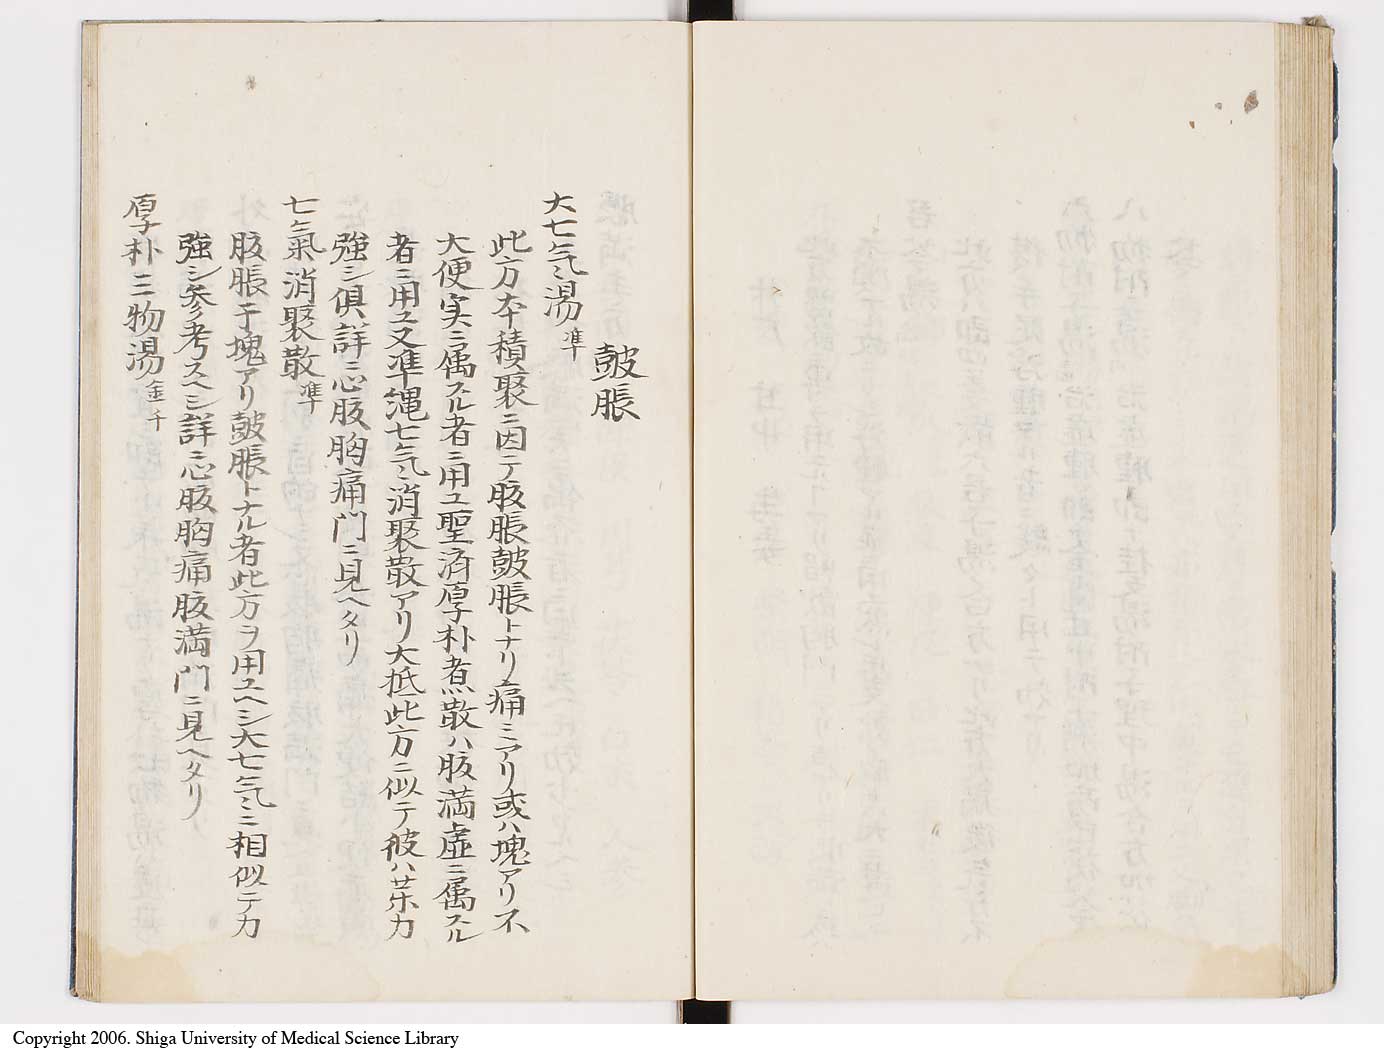 皷脹
大七気湯 準
此方本積聚ニ因テ腹脹皷脹トナリ痛ミアリ或ハ塊アリ不
大便実ニ属スル者ニ用ユ聖済厚朴煮散ハ腹満虚ニ属スル
者ニ用ユ又準縄七気消聚散アリ大抵此方ニ似テ彼ハ薬力
強シ倶詳ニ心腹胸痛門ニ見ヘタリ
七氣消聚散 準
腹脹于塊アリ皷脹トナル者此方ヲ用ユヘシ大七気ニ相似テ力
強シ参考スヘシ詳ニ心腹胸痛腹満門ニ見ヘタリ
厚朴三物湯 金千
Copyright 2006. Shiga University of Medical Science Library